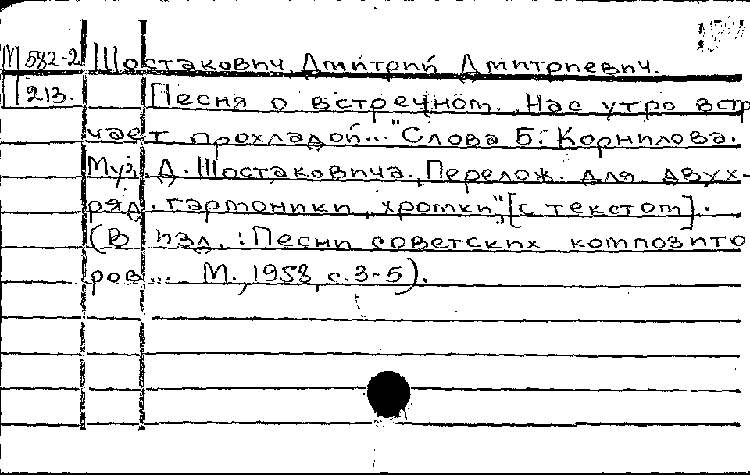 М 582-2 Шостакович, Дмитрий Дмитриевич.
П 213. Песня о встречном. „Нас утро встр
чает прохладой..." Слова Б. Корнилова.
Муз. Д. Шостаковича. Перелож. для двух-
ряд. гармоники „хромки", [с текстом].
(В изд.: Песни советских композито
ров... М., 1958, с. 3-5).